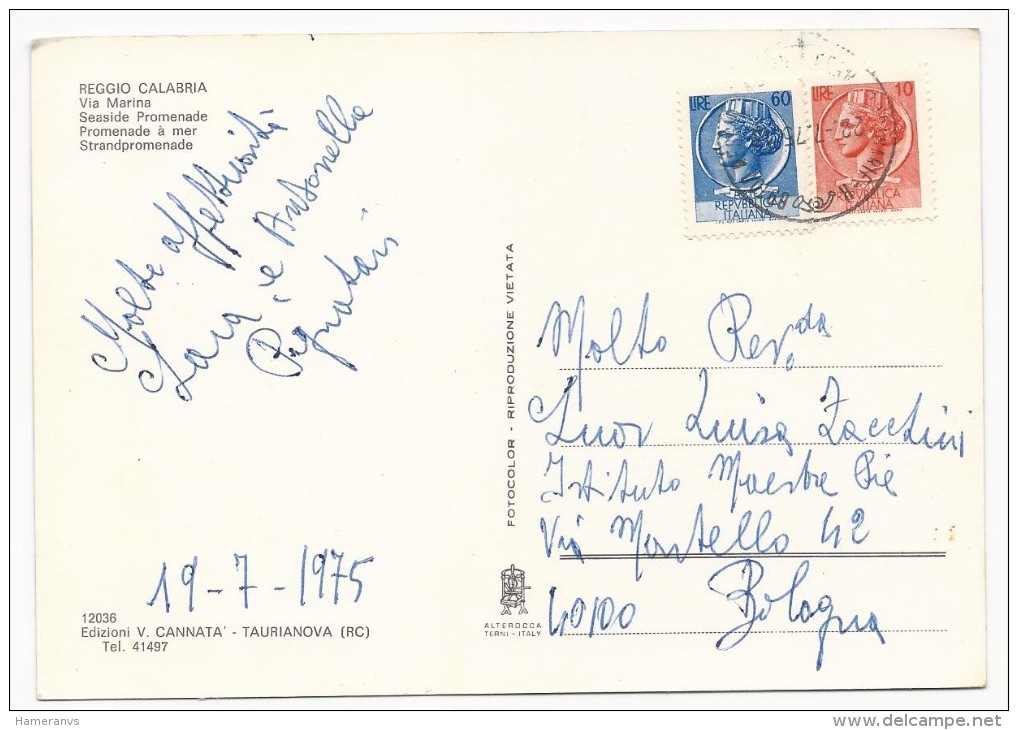 REGGIO CALABRIA
Via Marina
Seaside Promenade
Promenade à mer
Strandpromenade
Molte affettuosità
Lara e Antonella
Pignatari
19-7-1975
12036
Edizioni V. CANNATA' - TAURIANOVA (RC)
Tel. 41497
FOTOCOLOR - RIPRODUZIONE VIETATA
ALTEROCCA
TERNI - ITALY
LIRE 60
REPVBBLICA
ITALIANA
LIRE 10
REPVBBLICA
ITALIANA
Molto Rev.da
Suor Luisa Zacchini
Istituto Maestre Pie
Via Montello 42
40100 Bologna
Hameranvs
delcampe.net